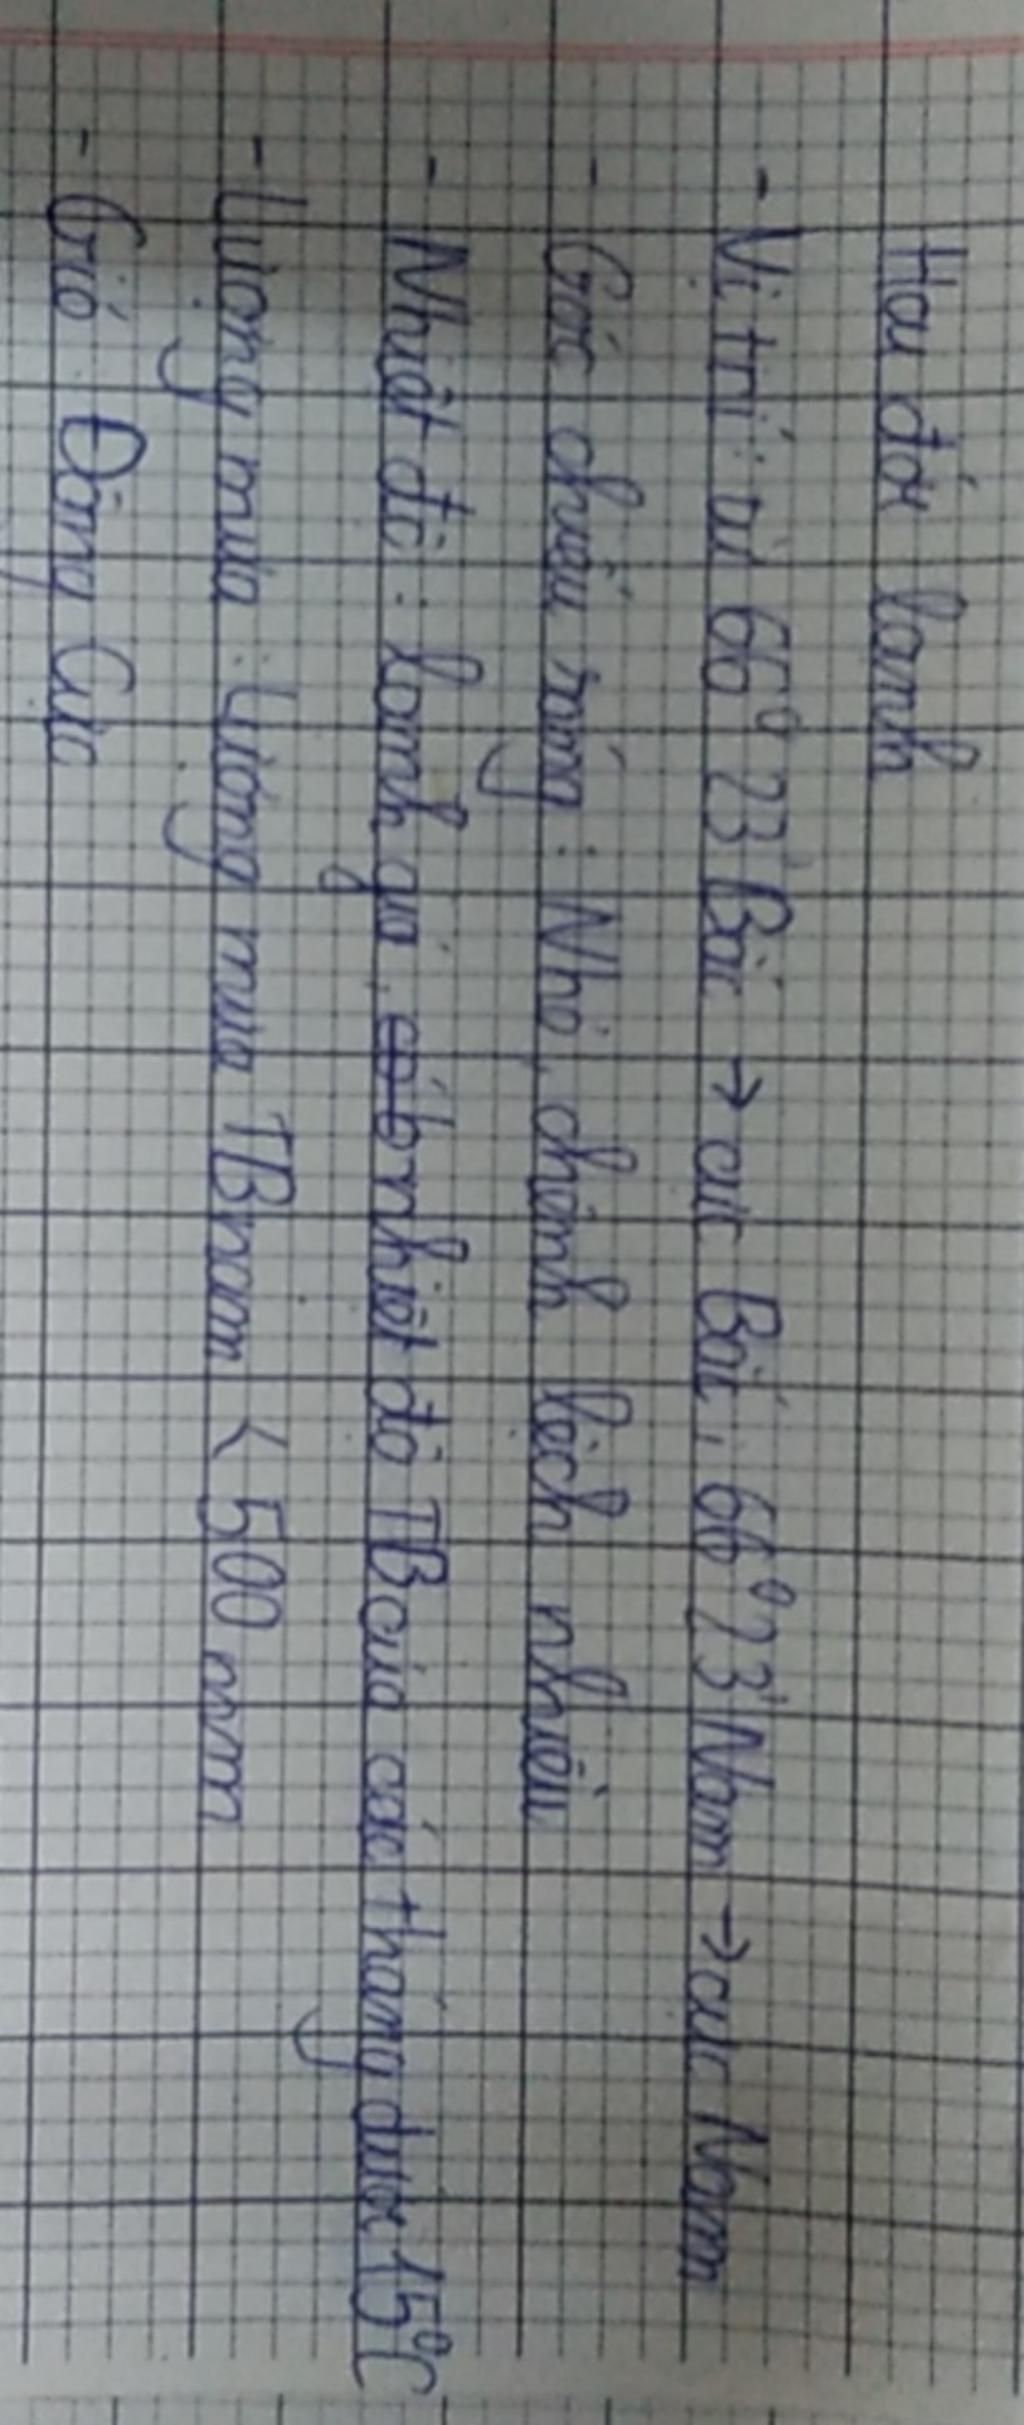 Hai đới lạnh
- Vị trí: từ 66°23' Bắc → cực Bắc, 66°23' Nam → cực Nam
- Góc chiếu sáng: Nhỏ, chênh lệch nhiều
- Nhiệt độ: lạnh giá, nhiệt độ TB của các tháng dưới 15°C
- Lượng mưa: Lượng mưa TB năm < 500 mm
- Gió Đông Cực